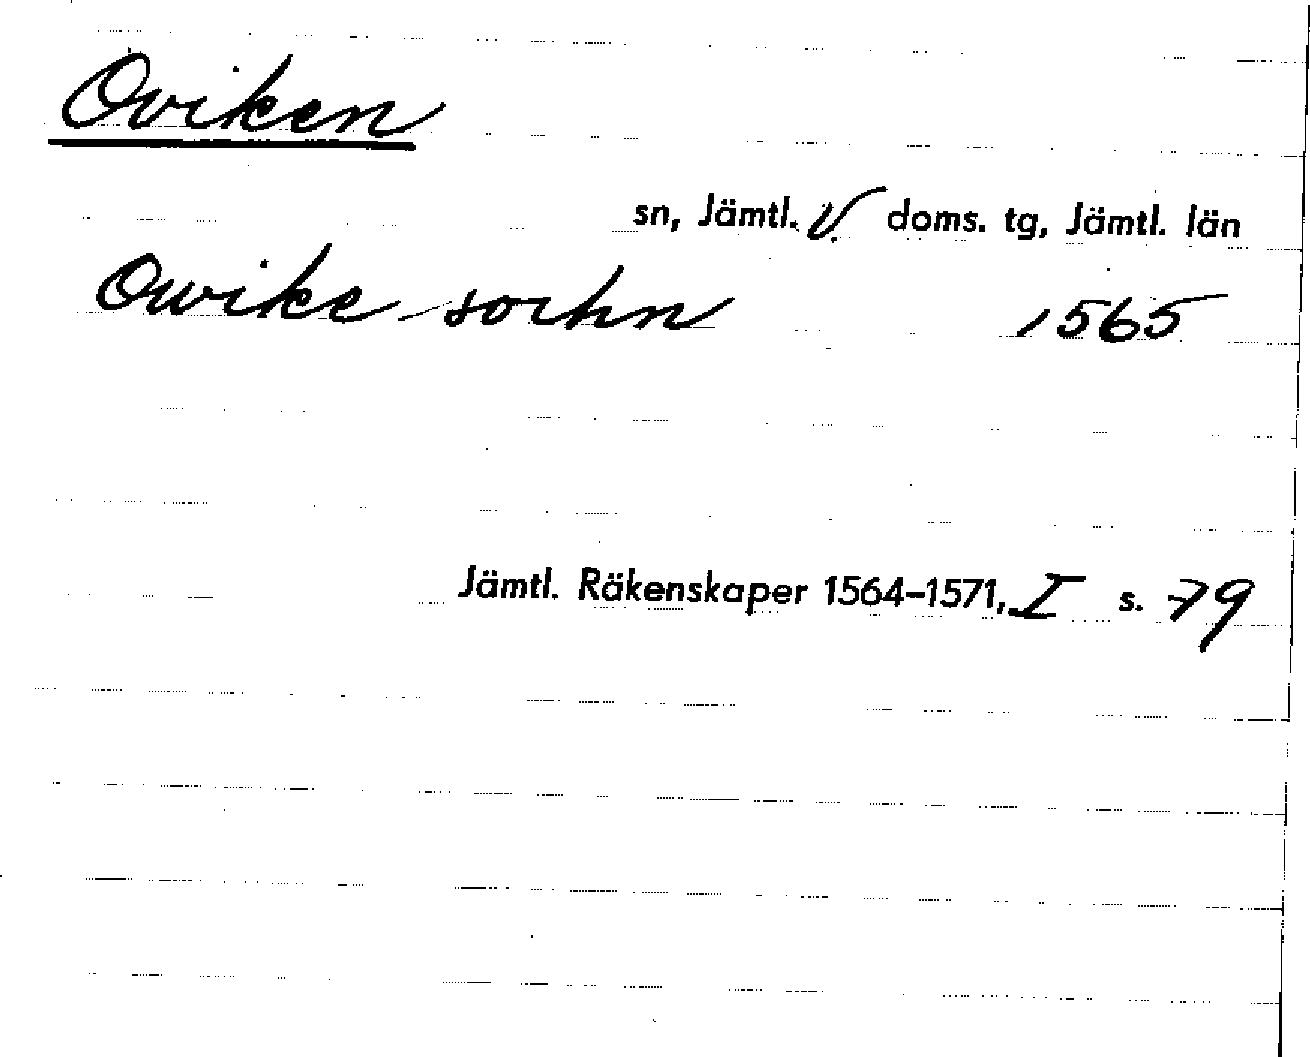 Oviken
sn, Jämtl. V. doms. tg, Jämtl. län
Owike sorhn 1565
Jämtl. Räkenskaper 1564–1571, I s. 79